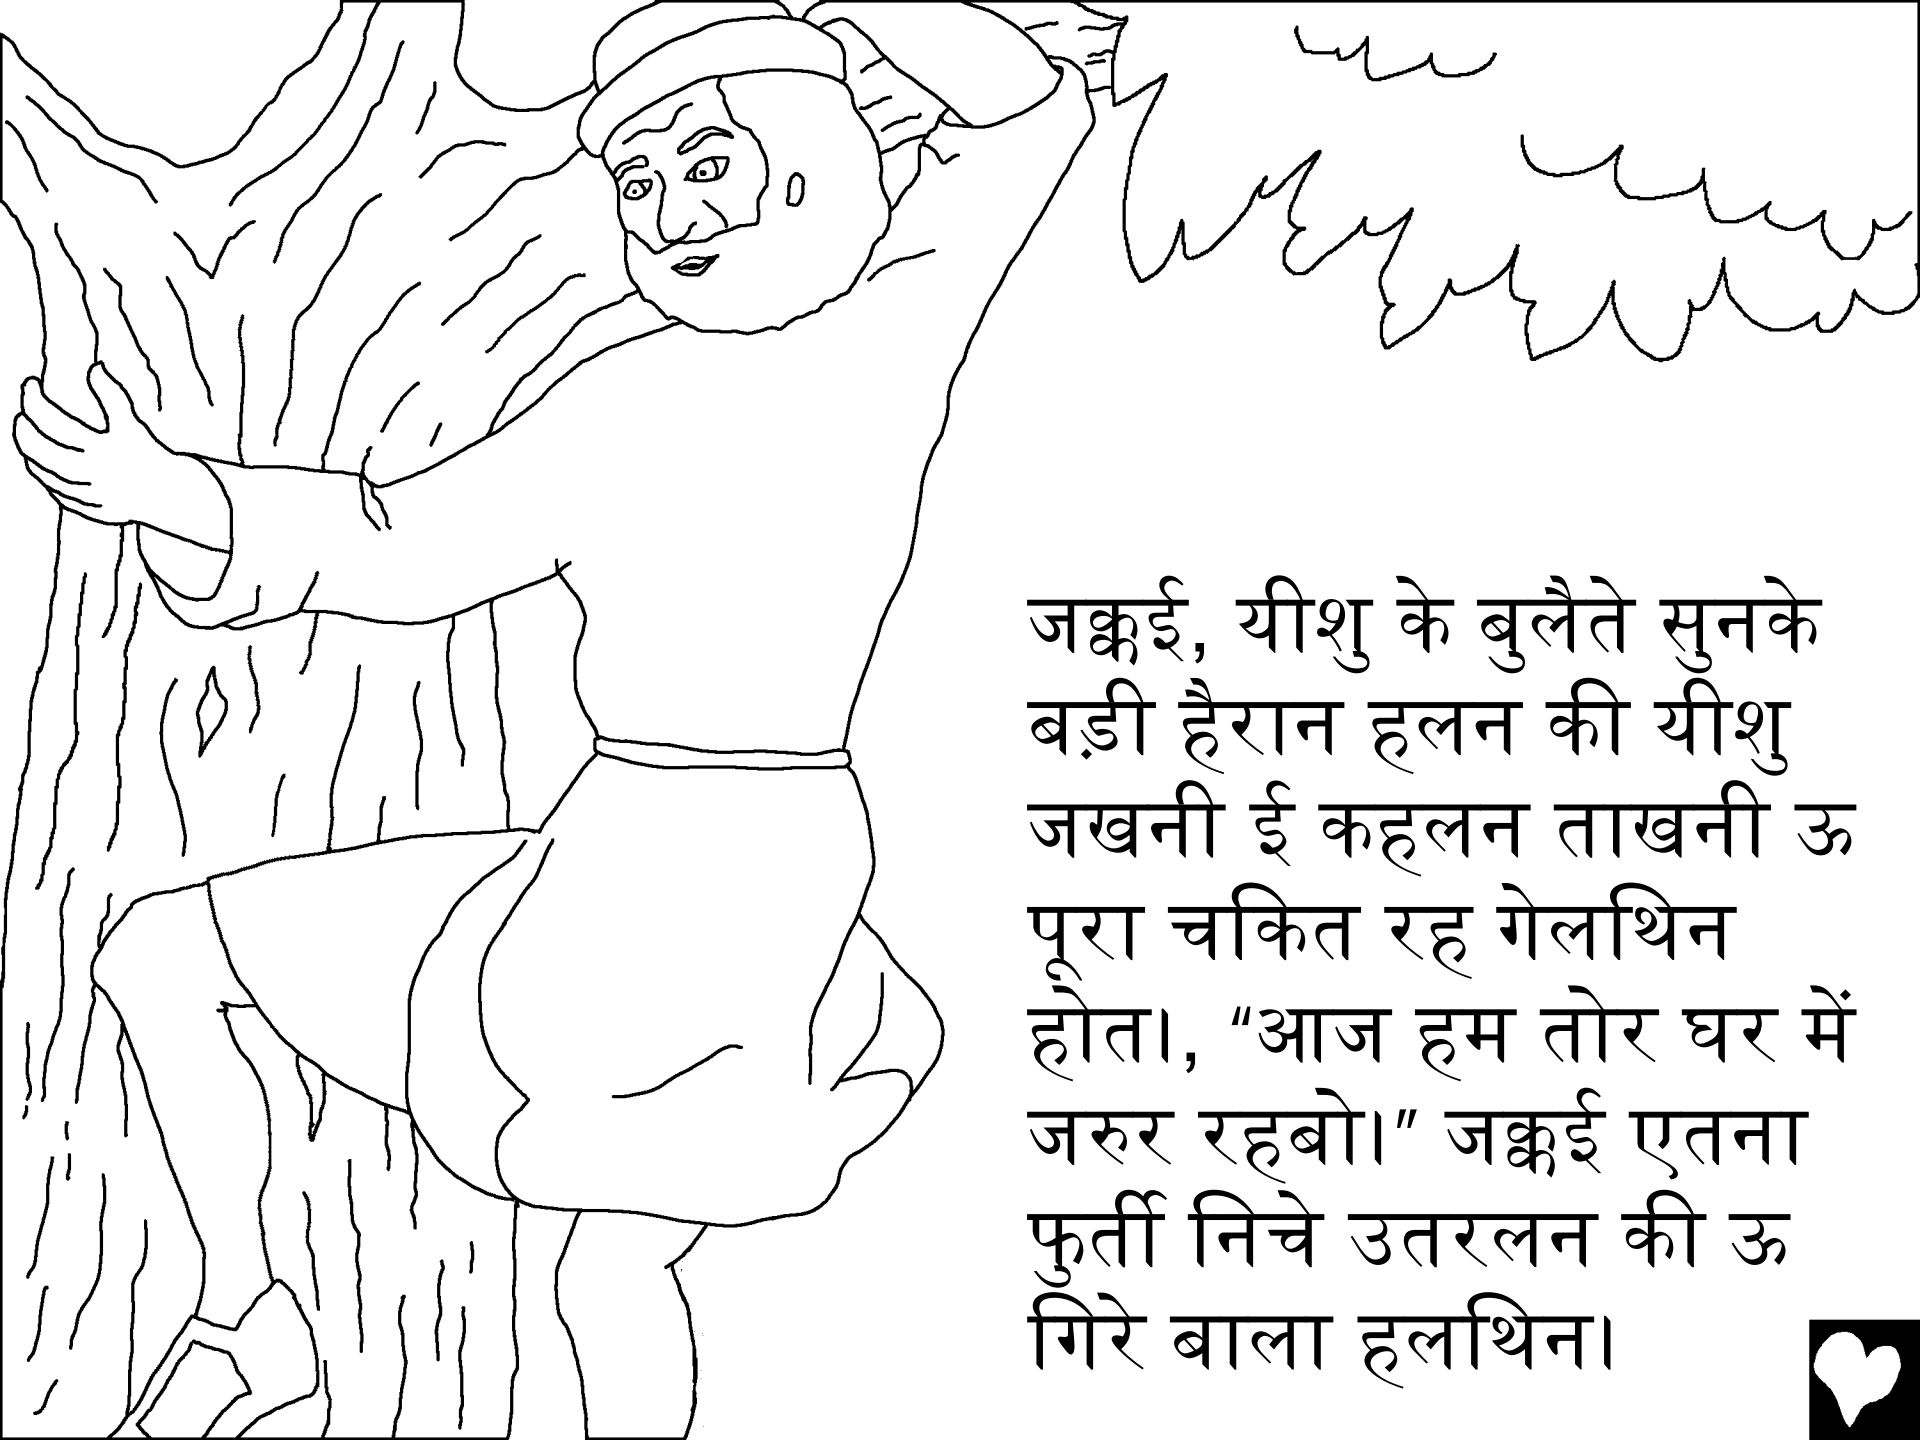 जक्कई, यीशु के बुलैते सुनके
बड़ी हैरान हलन की यीशु
जखनी ई कहलन ताखनी ऊ
पूरा चकित रह गेलथिन
होत।, “आज हम तोर घर में
जरुर रहबो।” जक्कई एतना
फुर्ती निचे उतरलन की ऊ
गिरे बाला हलथिन।